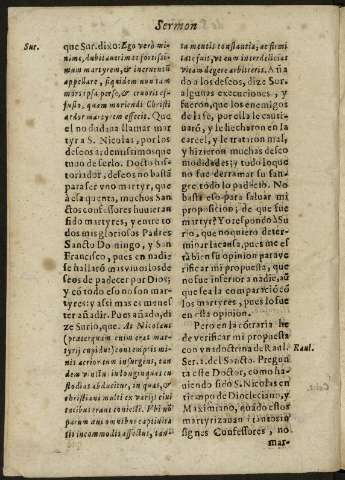 Sermon
Sur.
que Sur. dixo: Ego verò mi-
nime, dubitanterim et fortissi-
mum martyrem, & incruentũ
appellare, siquidem non tam
mors ipsa perse, & cruoris ef-
fusio, quam moriendi Christi
ardor martyrem efficit. Que
el no dudara llamar mar
tyr a S. Nicolas, por los
deseos ardentissimos que
tuuo de serlo. Docto his-
toriador, deseos no bastã
para ser vno martyr, que
à essa quenta, muchos San
ctos confessores huuieran
sido martyres, y entre to
dos mis gloriosos Padres
Sancto Domingo, y San
Francisco, pues en nadie
se hallarõ mas viuos los de
seos de padecer por Dios;
y cõ todo esso no son mar
tyres: y assi mas es menes
ter añadir. Pues añado, di
ze Surio, que. At Nicolaus
(præterquam enim erat mar-
tyrij cupidus) contemptis mi-
nis acriorum insurgens, tan
dem vinctus in longinquas cu
stodias abducitur, in quas, &
christiani multi ex varijs ciui
tatibus erant coniecti. Vbi nõ
parum aut omnibus captiuita
tis incommodis affectus, tan-
ta mentis constantia, ac firmi
tate fuit, vt eum in terdelicias
vitam degere arbitreris. Aña
do a los deseos, dize Sur.
algunas execuciones, y
fueron, que los enemigos
de la fe, por ella le cauti-
uarõ, y le hecharon en la
carcel, y le trataron mal,
y hizieron muchas desco
modidades; y todo lo que
no fue derramar su san-
gre, todo lo padecio. No
basta esso para saluar mi
proposicion; de que fue
martyr? Yo respondo à Su
rio, que no quiero deter-
minar la causa, pues me es
tà bien su opinion para ve
rificar mi propuesta, que
no fue inferior a nadie, aũ
que sea la comparaciõ cõ
los martyres, pues lo fue
en esta opinion.
Pero en la cõtraria he
de verificar mi propuesta
con vna doctrina de Raul.
Raul.
Ser. 1. del Sancto. Pregun
ta este Doctor, como ha-
uiendo sido S. Nicolas en
tiempo de Diocleciano, y
Maximiano, quãdo estos
martyrizauan tantos in-
signes Confessores, no
mar-